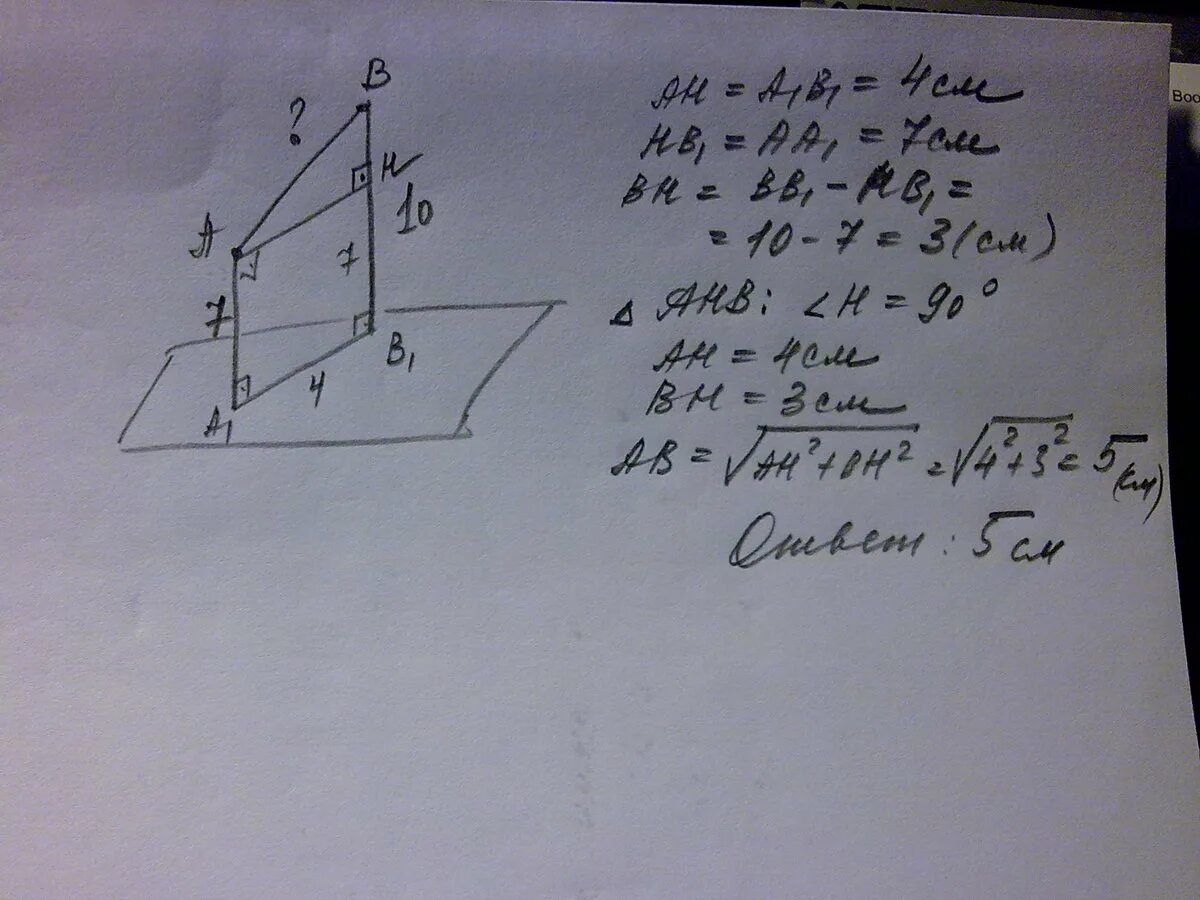 B
?
H
10
A
7
7
B₁
4
A₁
AH = A₁B₁ = 4см
HB₁ = AA₁ = 7см
BH = BB₁ - HB₁ =
= 10 - 7 = 3 (см)
△ AHB: ∠H = 90°
AH = 4см
BH = 3см
AB = √AH² + BH² = √4² + 3² = 5 (см)
Ответ: 5 см
Boo